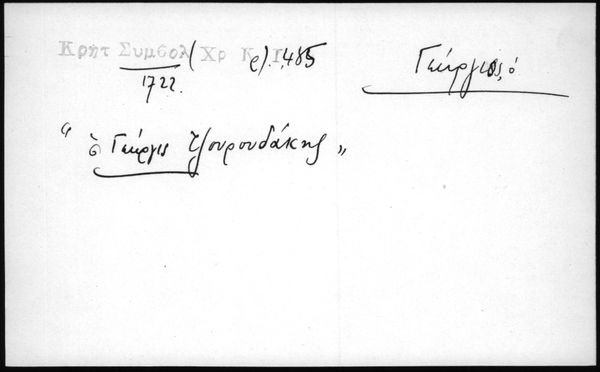 Κρητ Συμβολ (Χρ Κ Γ ρ).,485
1722.
Γεώργιος, ὁ
" ὁ Γεώργις Τζουρουδάκης "